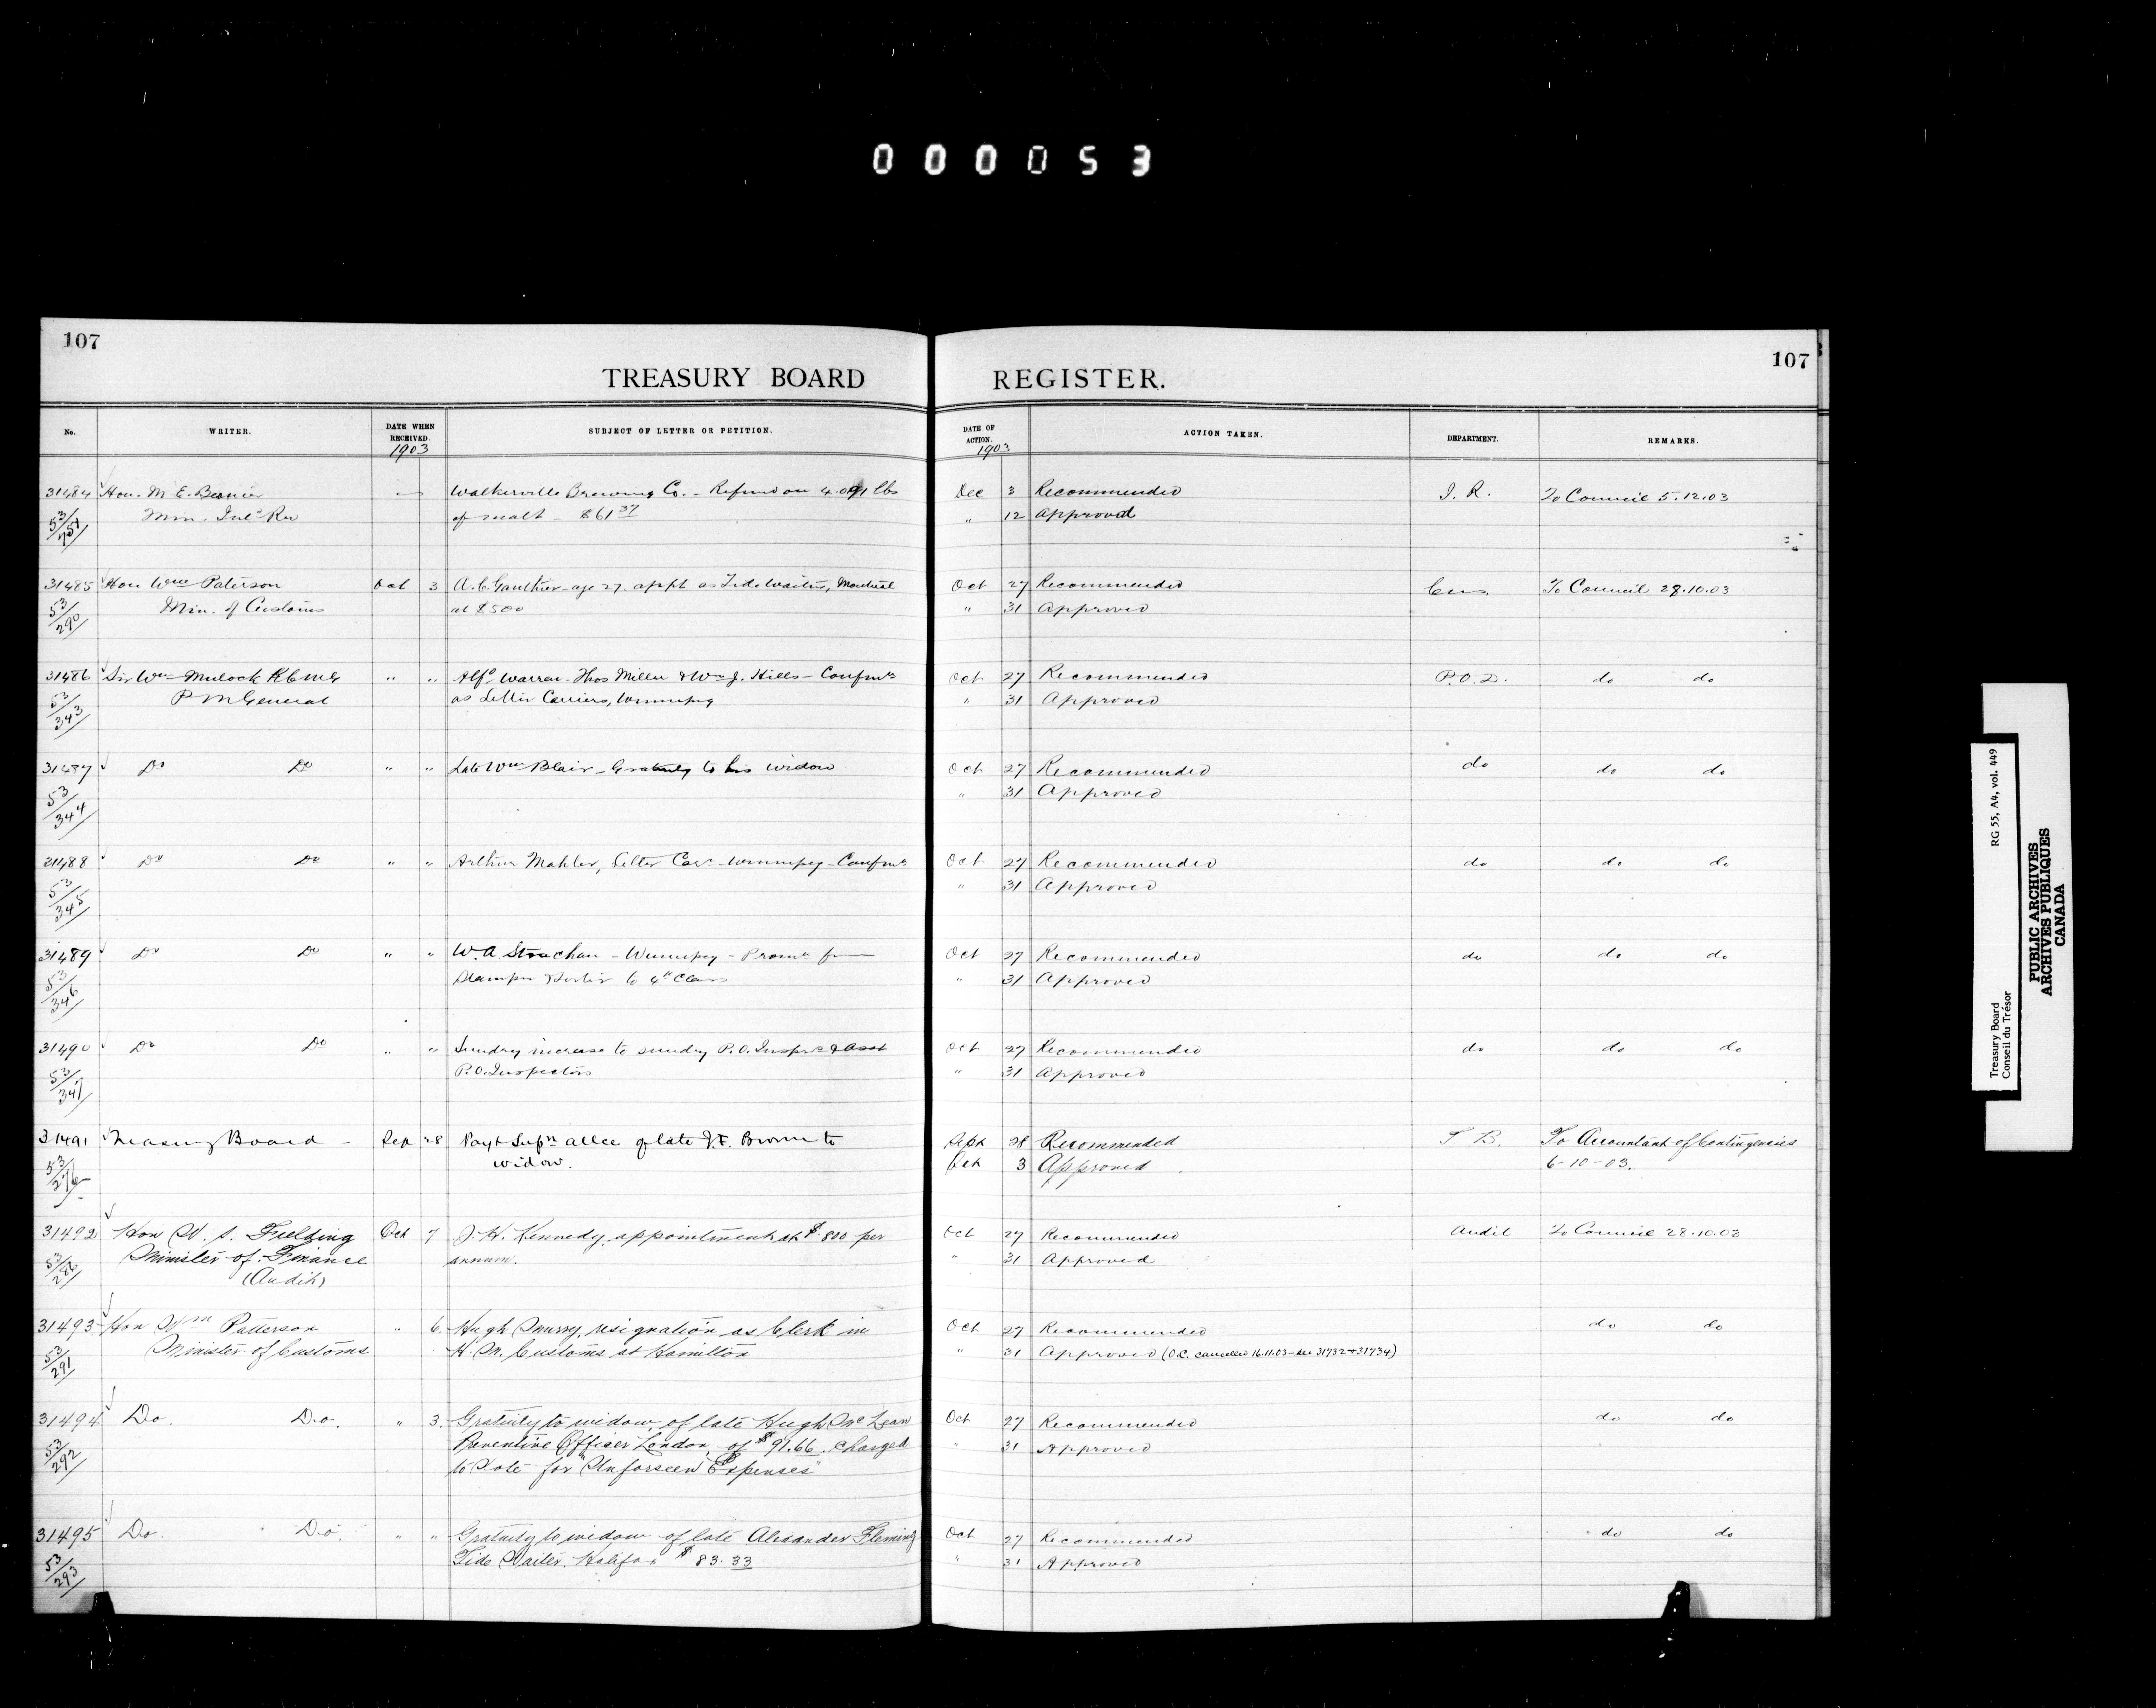 000053
107
107
TREASURY BOARD REGISTER.
No. WRITER. DATE WHEN RECEIVED. SUBJECT OF LETTER OR PETITION. DATE OF ACTION. ACTION TAKEN. DEPARTMENT. REMARKS.
1903 1903
31484 Hon. M. E. Bernier Walkerville Brewing Co. - Refund on 4.091 lbs Dec 3 Recommended I. R. To Council 5.12.03
53/751 Min. Inl^d Rev of malt - $61 37 " 12 Approved
31485 Hon Wm Paterson Oct 3 A. C. Gauthier - age 27. appt as Tide Waiter, Montreal Oct 27 Recommended Cus To Council 28.10.03
53/290 Min. of Customs at $500 " 31 Approved
31486 Sir Wm Mulock KCMG " " Alfd Warren - Thos Miller & Wm J. Hills - Confmn Oct 27 Recommended P.O.D. do do
53/343 P M General as Letter Carriers, Winnipeg " 31 Approved
31487 Do Do " " Late Wm Blair - Gratuity to his widow Oct 27 Recommended do do do
53/344 " 31 Approved
31488 Do Do " " Arthur Mahler, Letter Carr - Winnipeg - Confmn Oct 27 Recommended do do do
53/345 " 31 Approved
31489 Do Do " " W. A. Strachan - Winnipeg - Promn from Oct 27 Recommended do do do
53/346 Stamper & Sorter to 4th Class " 31 Approved
31490 Do Do " " Sundry increase to sundry P.O. Insprs & Asst Oct 27 Recommended do do do
53/347 P.O. Inspectors " 31 Approved
31491 Treasury Board - Sep 28 Payt Supn allce of late J. F. Brown to Sept 28 Recommended T. B. To Accountant of Contingencies
53/276 widow. Oct 3 Approved 6-10-03.
31492 Hon W. S. Fielding Oct 7 J. H. Kennedy, appointment at $800 per Oct 27 Recommended Audit To Council 28.10.03
53/286 Minister of Finance annum. " 31 Approved
(Audit)
31493 Hon Wm Patterson " 6. Hugh Murray, resignation as Clerk in Oct 27 Recommended do do
53/291 Minister of Customs H. M. Customs at Hamilton " 31 Approved (O.C. cancelled 16.11.03 - see 31732 + 31734)
31494 Do. Do. " 3. Gratuity to widow of late Hugh McLean Oct 27 Recommended do do
53/292 Preventive Officer London, of $91.66. charged " 31 Approved
to Vote for "Unforseen Expenses"
31495 Do. Do. " " Gratuity to widow of late Alexander Fleming Oct 27 Recommended do do
53/293 Tide Waiter. Halifax $83.33 " 31 Approved
Treasury Board RG 55, A4, vol. 449
Conseil du Trésor
PUBLIC ARCHIVES
ARCHIVES PUBLIQUES
CANADA